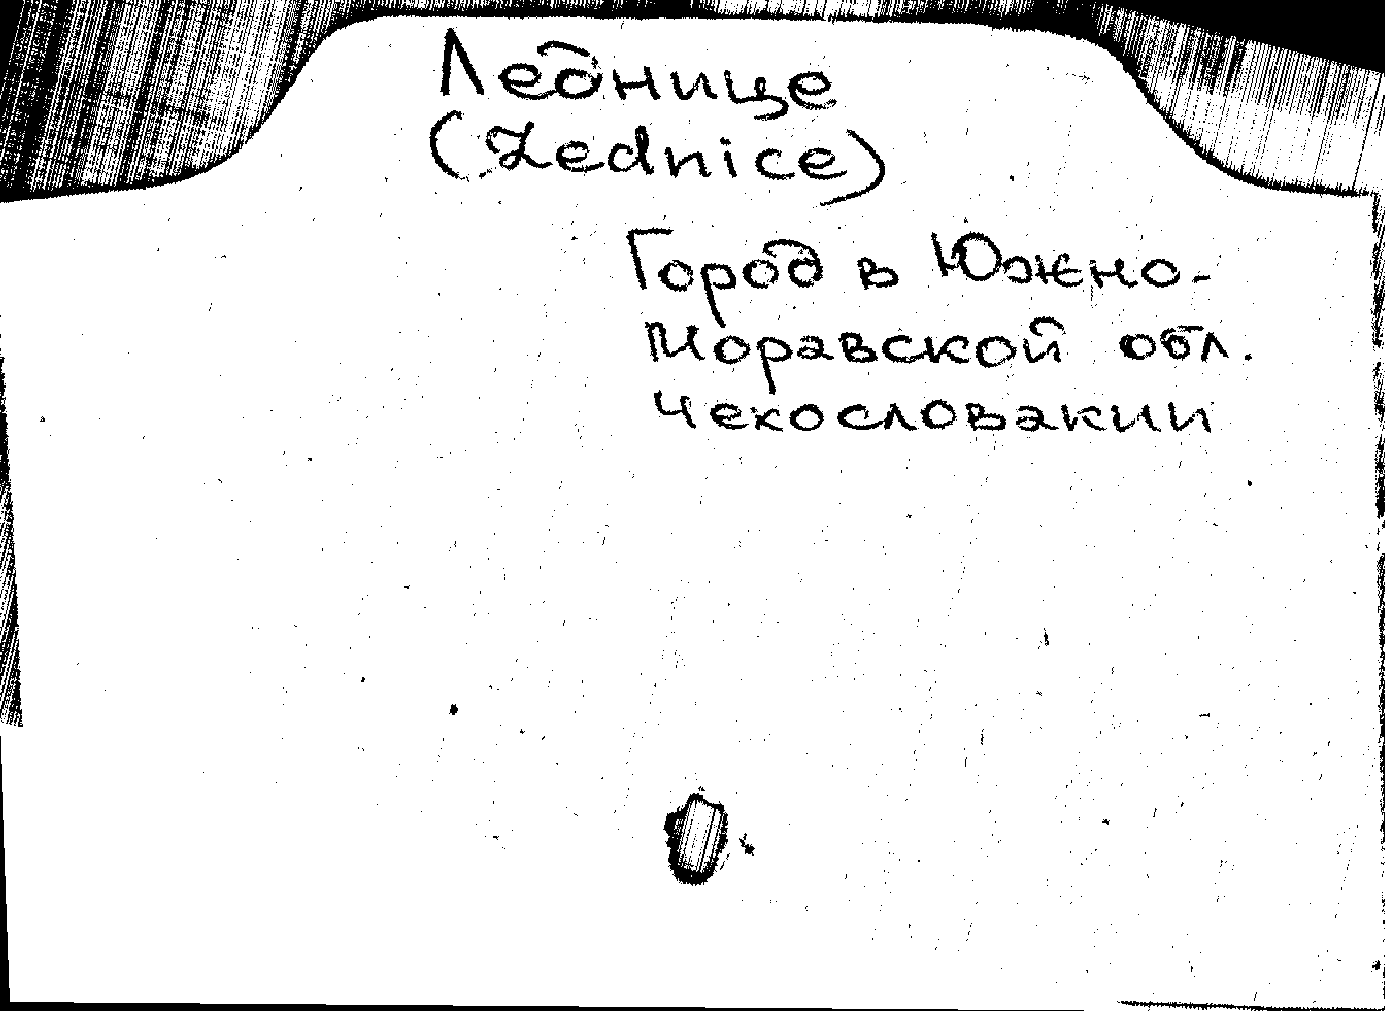 Леднице
(Lednice)
Город в Южно-
Моравской обл.
Чехословакии